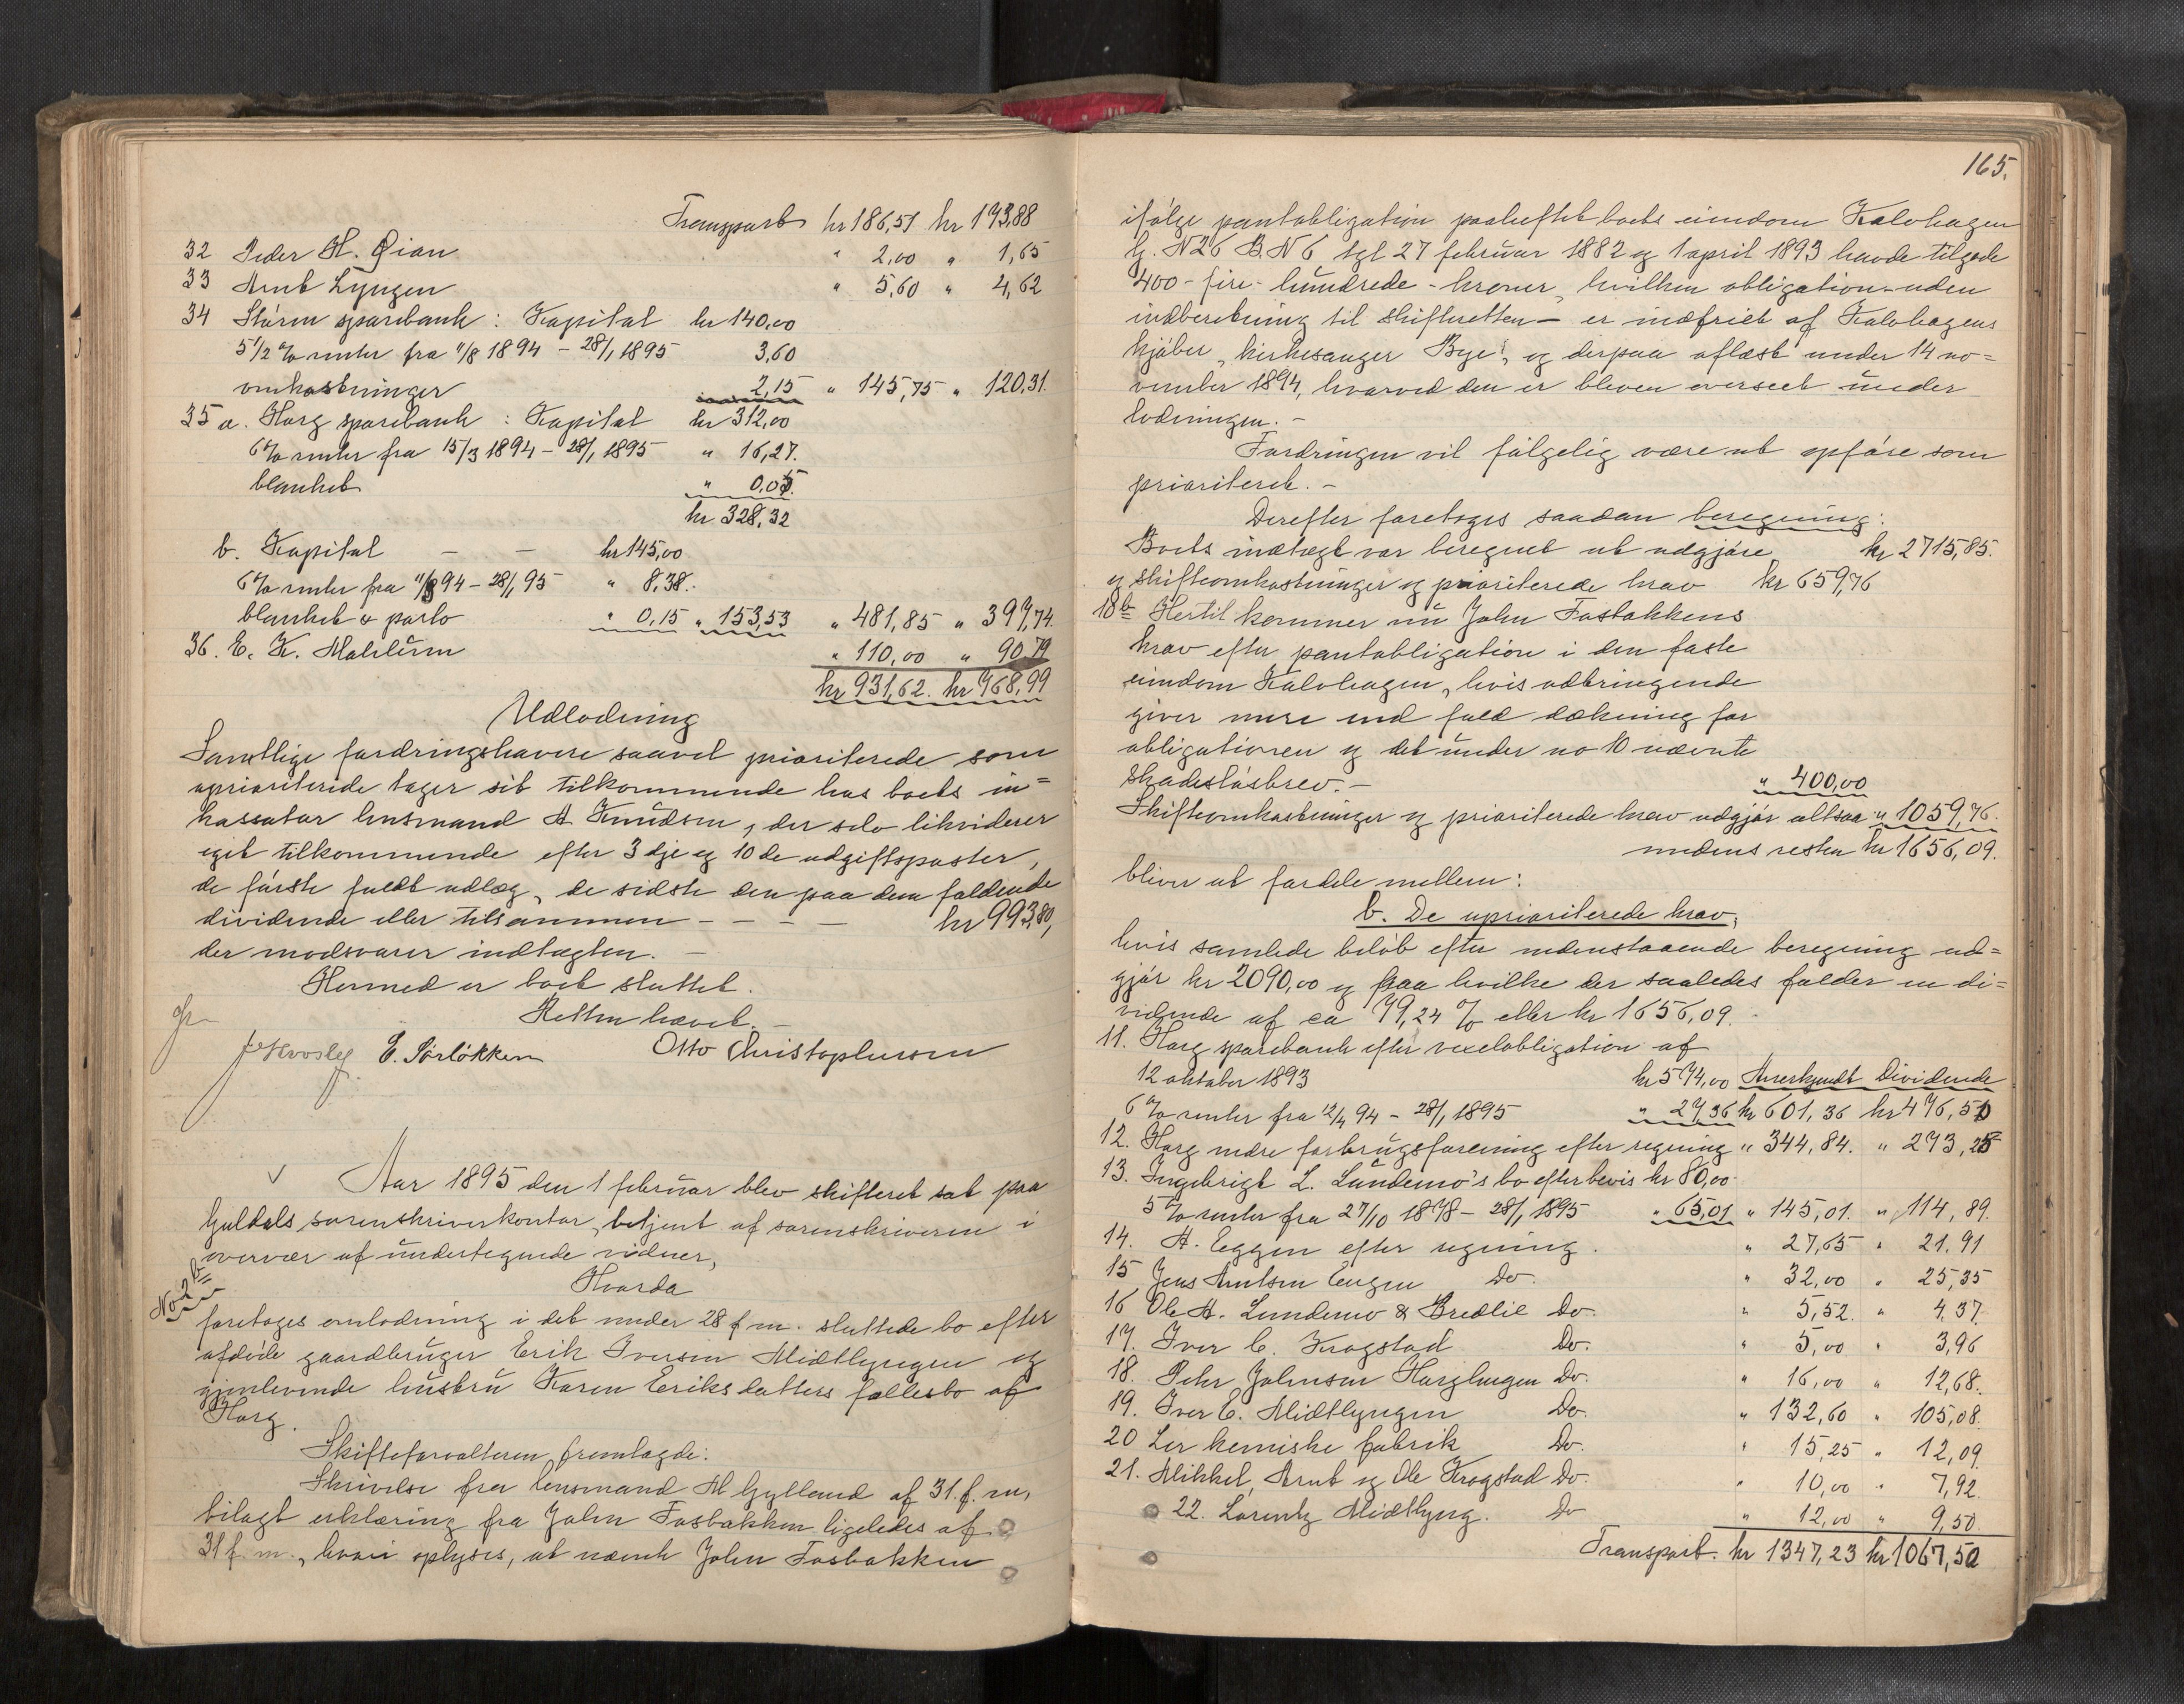 Transport kr 186,51 kr 193,88
32 Peder H. Øian " 2,00 " 1,65
33 Arnt Lyngen " 5,60 " 4,62
34 Støren sparebank: Kapital kr 140,00
5 1/2 % renter fra 11/8 1894 - 28/1 1895 3,60
omkostninger 2,15 " 145,75 " 120,31.
35 a. Horg sparebank: Kapital kr 312,00
6 % renter fra 15/3 1894 - 28/1 1895 " 16,27.
blanket " 0,05.
kr 328,32
b. Kapital — — kr 145,00
6 % renter fra 11/8 94 - 28/1 95 " 8,38.
blanket & porto " 0,15 " 153,53 " 481,85 " 397,74.
36. E. K. Mælum " 110,00 " 90,79
kr 931,62. kr 768,99
Udlodning
Samtlige fordringshavere saavel prioriterede som
uprioriterede tager sit tilkommende hos boets in=
kassator lensmand A Knudsen, der selv likviderer
eget tilkommende efter 3dje og 10de udgiftsposter,
de første fuldt udlæg, de sidste den paa dem faldende
dividende eller tilsammen - - - kr 993,80,
der modsvarer indtægten. -
Hermed er boet sluttet.
Retten hævet. -
E. Sørløkken Otto Christophersen
Aar 1895 den 1 februar blev skifteret sat paa
Guldals sorenskriverkontor, betjent af sorenskriveren i
overvær af undertegnede vidner,
Hvorda
No 2 b
foretoges omlodning i det under 28 f m. sluttede bo efter
afdøde gaardbruger Erik Iversen Midtlyngen og
gjenlevende hustru Karen Eriksdatters fællesbo af
Horg.
Skifteforvalteren fremlagde:
Skrivelse fra lensmand M Gylland af 31. f. m.
bilagt erklæring fra John Fosbakken ligeledes af
31 f. m., hvori oplyses, at nævnte John Fosbakken
165.
ifølge pantobligation paaheftet boets eiendom Kalvhagen
G. N 26 B. N 6 tgl 27 februar 1882 og 1 april 1893 havde tilgode
400 - fire - hundrede - kroner, hvilken obligation - uden
indberetning til skifteretten - er indfriet af Kalvhagens
kjøber, kirkesanger Bye, og derpaa aflæst under 14 no=
vember 1894, hvorved den er bleven overseet under
lodningen. -
Fordringen vil følgelig være at opføre som
prioriteret. -
Derefter foretoges saadan beregning:
Boets indtægt var beregnet at udgjøre kr 2715,85.
og skifteomkostninger og prioriterede krav kr 659,76
10 b Hertil kommer nu John Fosbakkens
krav efter pantobligation i den faste
eiendom Kalvhagen, hvis udbringende
giver mere end fuld dækning for
obligationen og det under no 10 nævnte
skadesløsbrev. - " 400,00
Skifteomkostninger og prioriterede krav udgjør altsaa " 1059,76.
medens resten kr 1656,09.
bliver at fordele mellem:
b. De uprioriterede krav,
hvis samlede beløb efter nedenstaaende beregning ud=
gjør kr 2090,00 og paa hvilke der saaledes falder en di=
vidende af ca 79,24 % eller kr 1656,09.
11. Horg sparebank efter vexelobligation af
12 oktober 1893 kr 574,00 Anerkjendt Dividende
6 % renter fra 12/4 94 - 28/1 1895 " 27,36 kr 601,36 kr 476,50
12. Horg nedre forbrugsforening efter regning " 344,84. " 273,25
13. Ingebrigt L. Lundemo's bo efter bevis kr 80,00
5 % renter fra 27/10 1878 - 28/1 1895 " 65,01 " 145,01. " 114,89.
14. A. Eggen efter regning. " 27,65 " 21,91
15 Jens Arntsen Engen Do. " 32,00 " 25,35
16 Ole A. Lundemo & Bredlie Do. " 5,52. " 4,37.
17. Iver E. Krogstad Do. " 5,00 " 3,96
18. Peter Johnsen Horglyngen Do. " 16,00 " 12,68.
19. Iver E. Midtlyngen Do. " 132,60 " 105,08.
20 Ler kemiske fabrik Do. " 15,25 " 12,09.
21. Mikkel, Arnt og Ole Krogstad Do. " 10,00 " 7,92.
22. Lorentz Midtlyng. Do " 12,00 " 9,50.
Transport. kr 1347,23 kr 1067,50